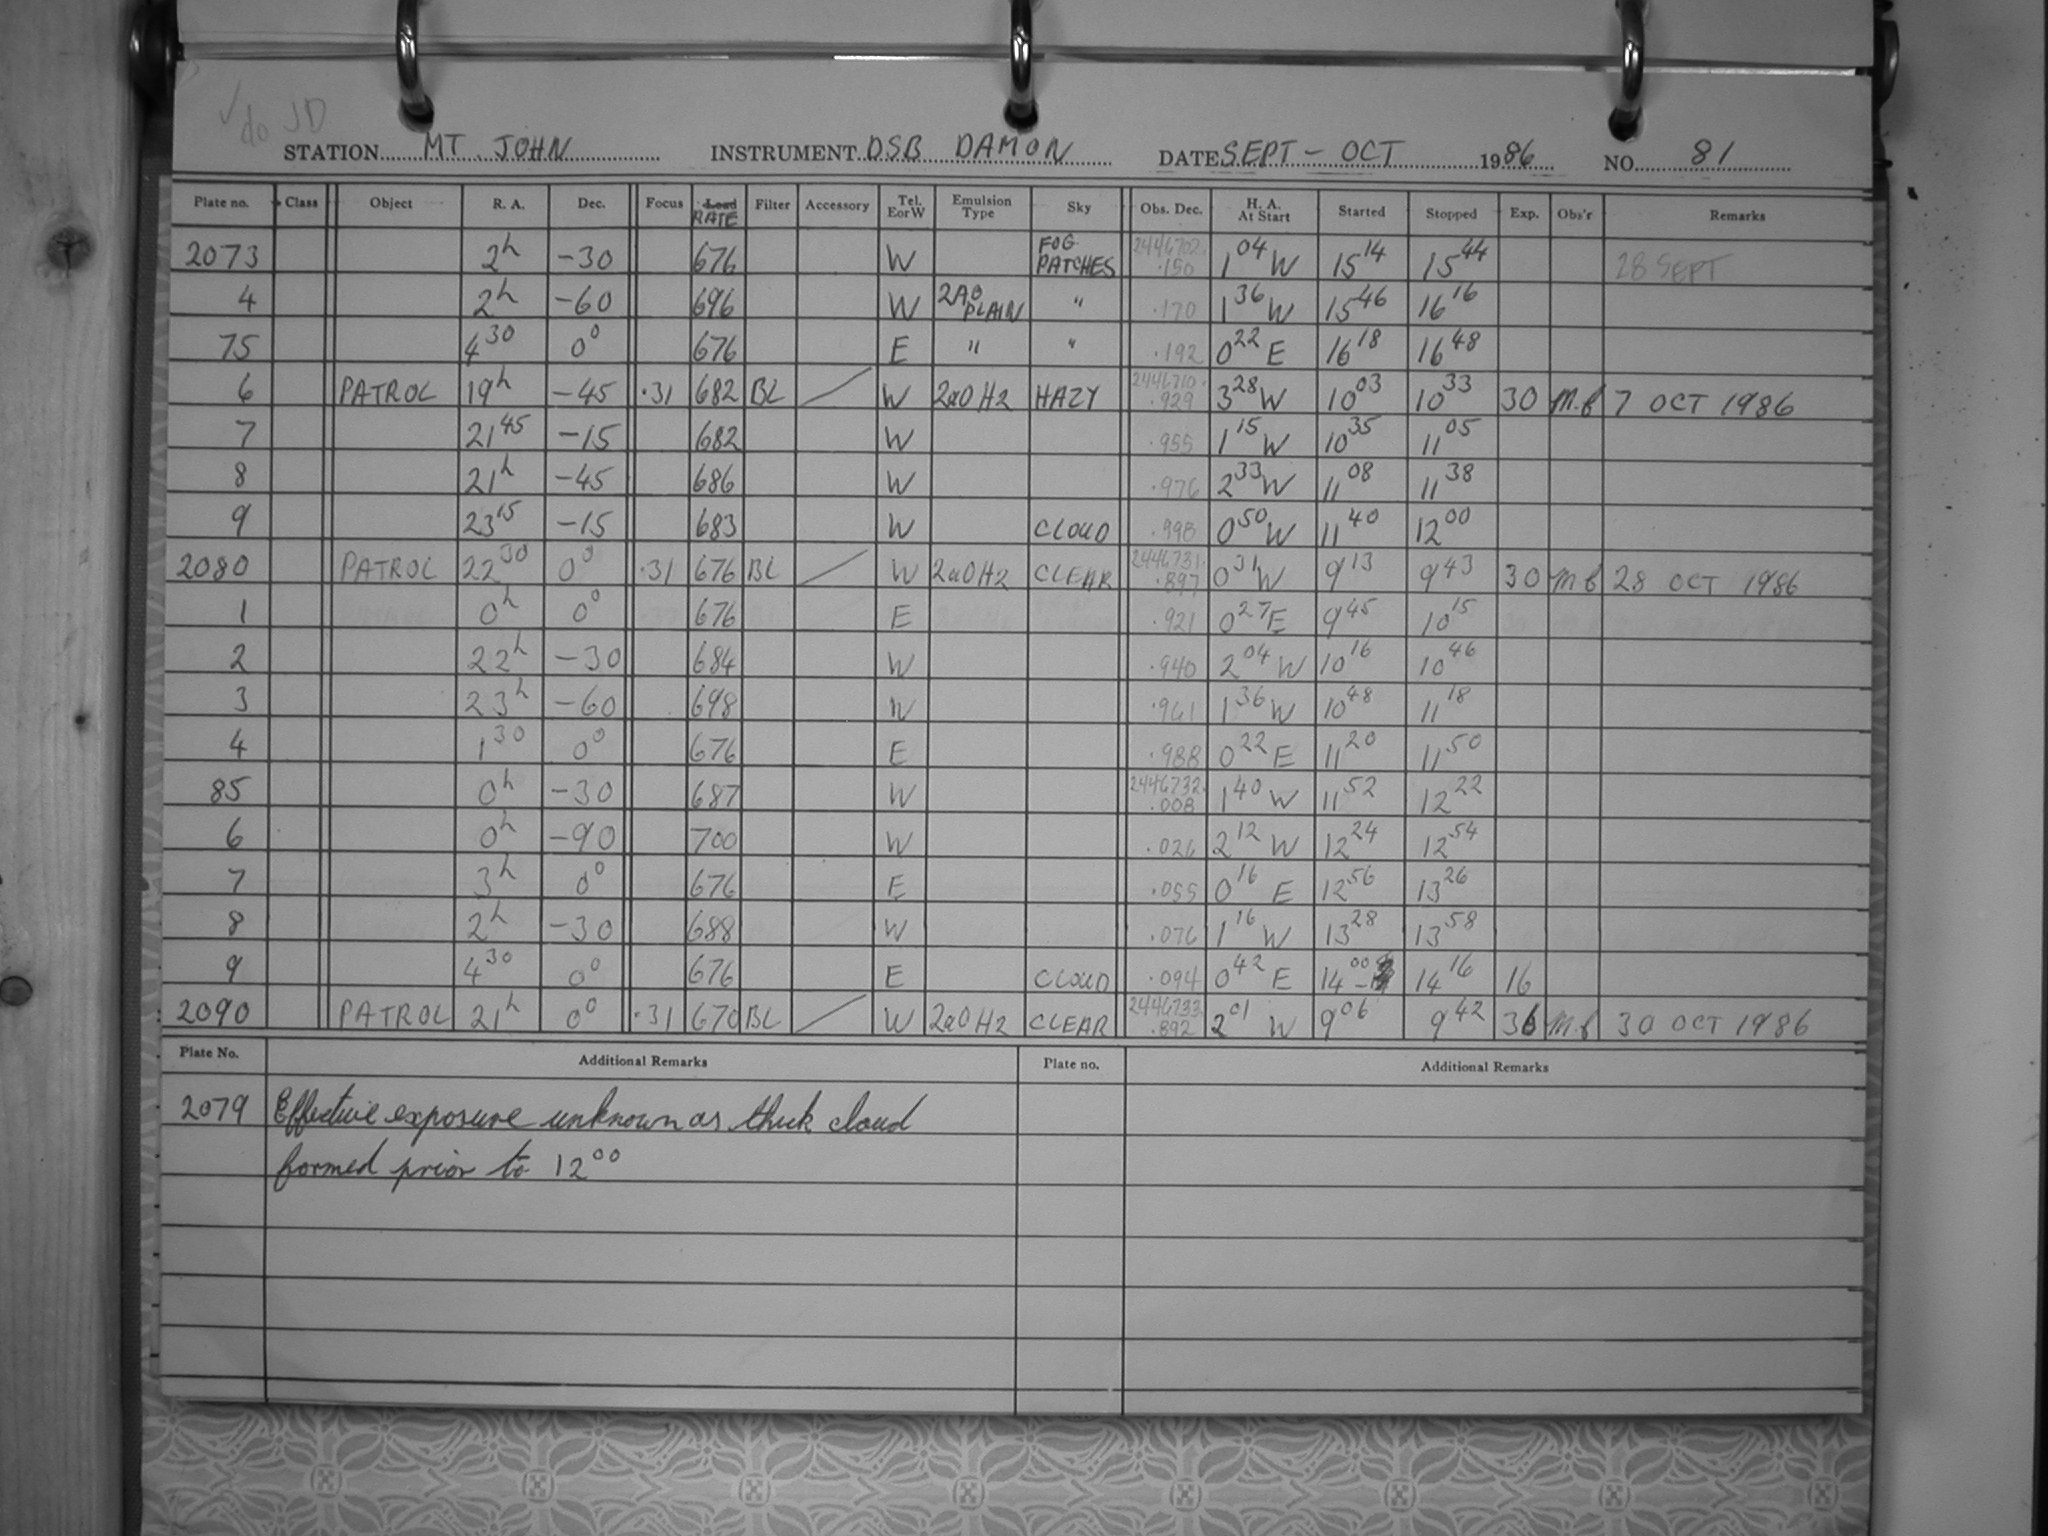 ✓ do JD
STATION MT. JOHN INSTRUMENT DSB DAMON DATE SEPT - OCT 1986 NO. 81
Plate no. Class Object R. A. Dec. Focus Load RATE Filter Accessory Tel. E or W Emulsion Type Sky Obs. Dec. H. A. At Start Started Stopped Exp. Obs'r Remarks
2073 2h -30 676 W FOG PATCHES 2446702. .150 1 04 W 15 14 15 44 28 SEPT
4 2h -60 696 W 2AO PLAIN " .170 1 36 W 15 46 16 16
75 4 30 0° 676 E " " .192 0 22 E 16 18 16 48
6 PATROL 19h -45 .31 682 BL W 2aO H2 HAZY 2446710. .929 3 28 W 10 03 10 33 30 M.B 7 OCT 1986
7 21 45 -15 682 W .955 1 15 W 10 35 11 05
8 21h -45 686 W .976 2 33 W 11 08 11 38
9 23 15 -15 683 W CLOUD .998 0 50 W 11 40 12 00
2080 PATROL 22 30 0° .31 676 BL W 2aO H2 CLEAR 2446731. .897 0 31 W 9 13 9 43 30 M.B 28 OCT 1986
1 0h 0° 676 E .921 0 27 E 9 45 10 15
2 22h -30 684 W .940 2 04 W 10 16 10 46
3 23h -60 698 W .961 1 36 W 10 48 11 18
4 1 30 0° 676 E .988 0 22 E 11 20 11 50
85 0h -30 687 W 2446732. .008 1 40 W 11 52 12 22
6 0h -90 700 W .026 2 12 W 12 24 12 54
7 3h 0° 676 E .055 0 16 E 12 56 13 26
8 2h -30 688 W .076 1 16 W 13 28 13 58
9 4 30 0° 676 E CLOUD .094 0 42 E 14 00 14 16 16
2090 PATROL 21h 0° .31 670 BL W 2aO H2 CLEAR 2446733. .892 2 01 W 9 06 9 42 36 M.B 30 OCT 1986
Plate No. Additional Remarks Plate no. Additional Remarks
2079 Effective exposure unknown as thick cloud
formed prior to 12 00